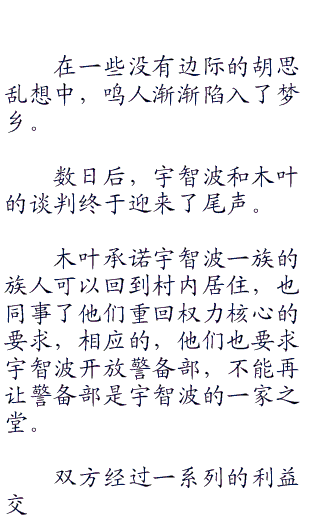 在一些没有边际的胡思
乱想中，鸣人渐渐陷入了梦
乡。
数日后，宇智波和木叶
的谈判终于迎来了尾声。
木叶承诺宇智波一族的
族人可以回到村内居住，也
同事了他们重回权力核心的
要求，相应的，他们也要求
宇智波开放警备部，不能再
让警备部是宇智波的一家之
堂。
双方经过一系列的利益
交